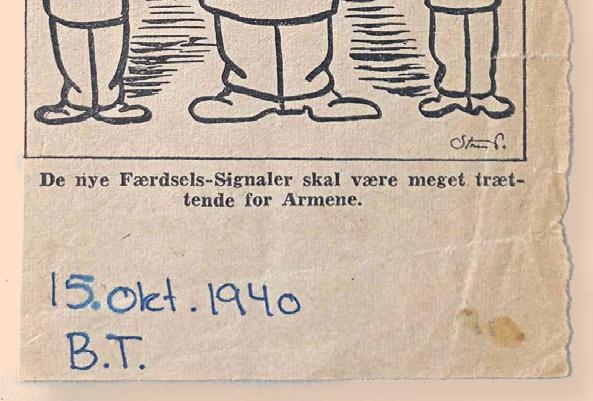 De nye Færdsels-Signaler skal være meget træt-
tende for Armene.
15. Okt. 1940
B.T.